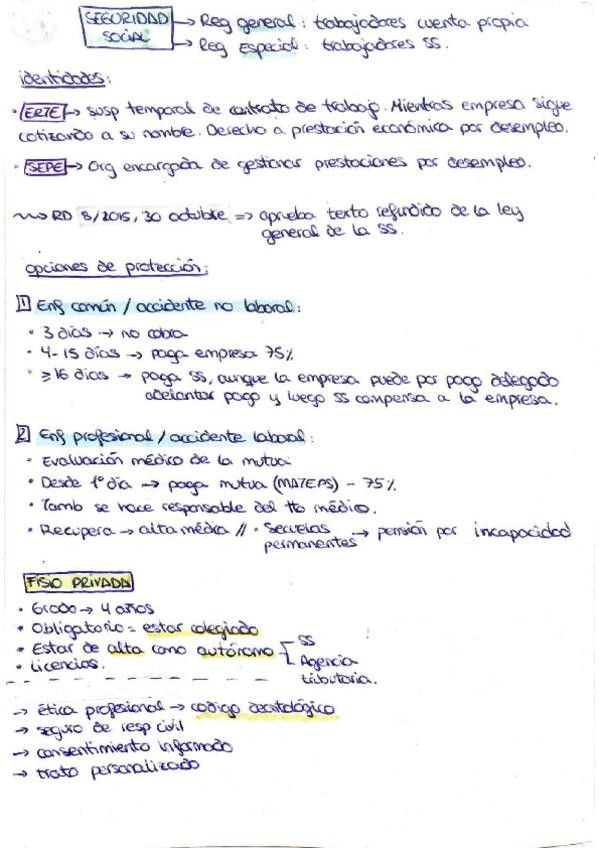 SEGURIDAD SOCIAL → Reg general: trabajadores cuenta propia
→ Reg Especial: trabajadores SS.
identidades:
· ERTE → susp temporal de contrato de trabajo. Mientras empresa sigue
cotizando a su nombre. Derecho a prestación económica por desempleo.
· SEPE → Org encargada de gestionar prestaciones por desempleo.
RD 8/2015, 30 octubre => aprueba texto refundido de la ley
general de la SS.
opciones de protección:
1 Enf común / accidente no laboral:
· 3 días → no cobra
· 4-15 días → paga empresa 75%
· ≥16 días → paga SS, aunque la empresa puede por pago delegado
adelantar pago y luego SS compensa a la empresa.
2 Enf profesional / accidente laboral:
· Evaluación médico de la mutua
· Desde 1º día → paga mutua (MATEPS) - 75%
· Tamb se hace responsable del tto médico.
· Recupera → alta médica // · Secuelas → pensión por incapacidad
permanentes
FISIO PRIVADA
· Grado → 4 años
· Obligatorio = estar colegiado
· Estar de alta como autónomo - SS
· Licencias. Agencia
tributaria.
→ ética profesional → código deontológico
→ seguro de resp civil
→ consentimiento informado
→ trato personalizado